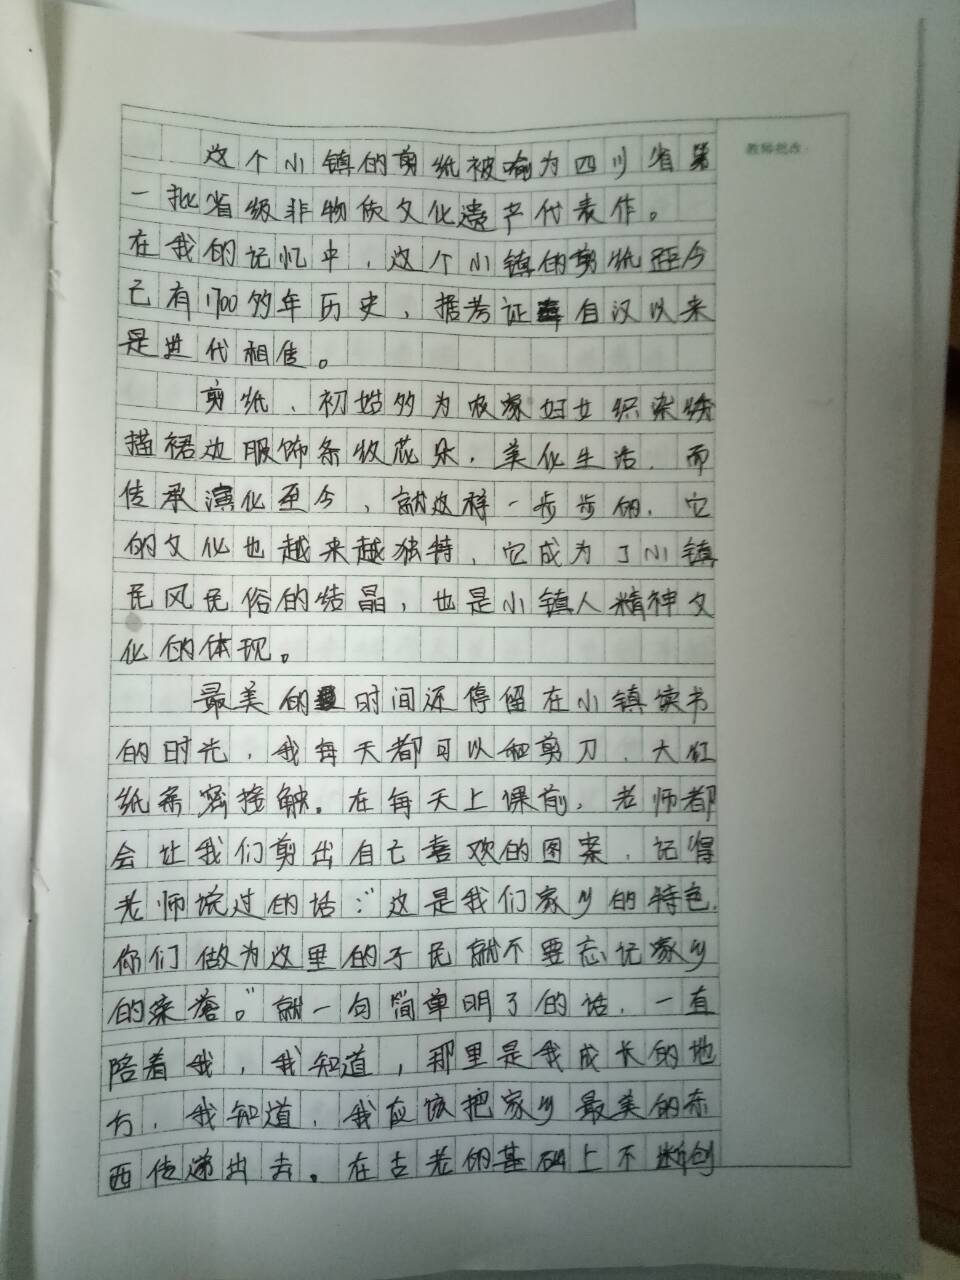 这个小镇的剪纸被喻为四川省第
教师批改：
一批省级非物质文化遗产代表作。
在我的记忆中，这个小镇的剪纸距今
已有1700多年历史，据考证自汉以来
是世代相传。
剪纸、初始多为农家妇女织染绣
描裙边服饰条纹花朵，美化生活，而
传承演化至今，就这样一步步的，它
的文化也越来越独特，它成为了小镇
民风民俗的结晶，也是小镇人精神文
化的体现。
最美的时间还停留在小镇读书
的时光，我每天都可以和剪刀、大红
纸亲密接触。在每天上课前，老师都
会让我们剪出自己喜欢的图案，记得
老师说过的话："这是我们家乡的特色，
你们做为这里的子民就不要忘记家乡
的底蕴。"就一句简单明了的话，一直
陪着我，我知道，那里是我成长的地
方，我知道，我应该把家乡最美的东
西传递出去。在古老的基础上不断创